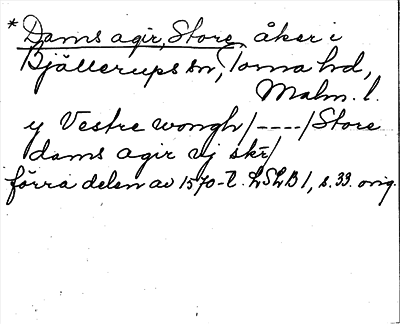 * Dams agir, Store, åker i
Bjällerups sn, Torna hd,
Malm. l.
y Vestre wongh/----/Store
dams agir vj skr/
förra delen av 1570-t. LSLB 1, s. 33. orig.